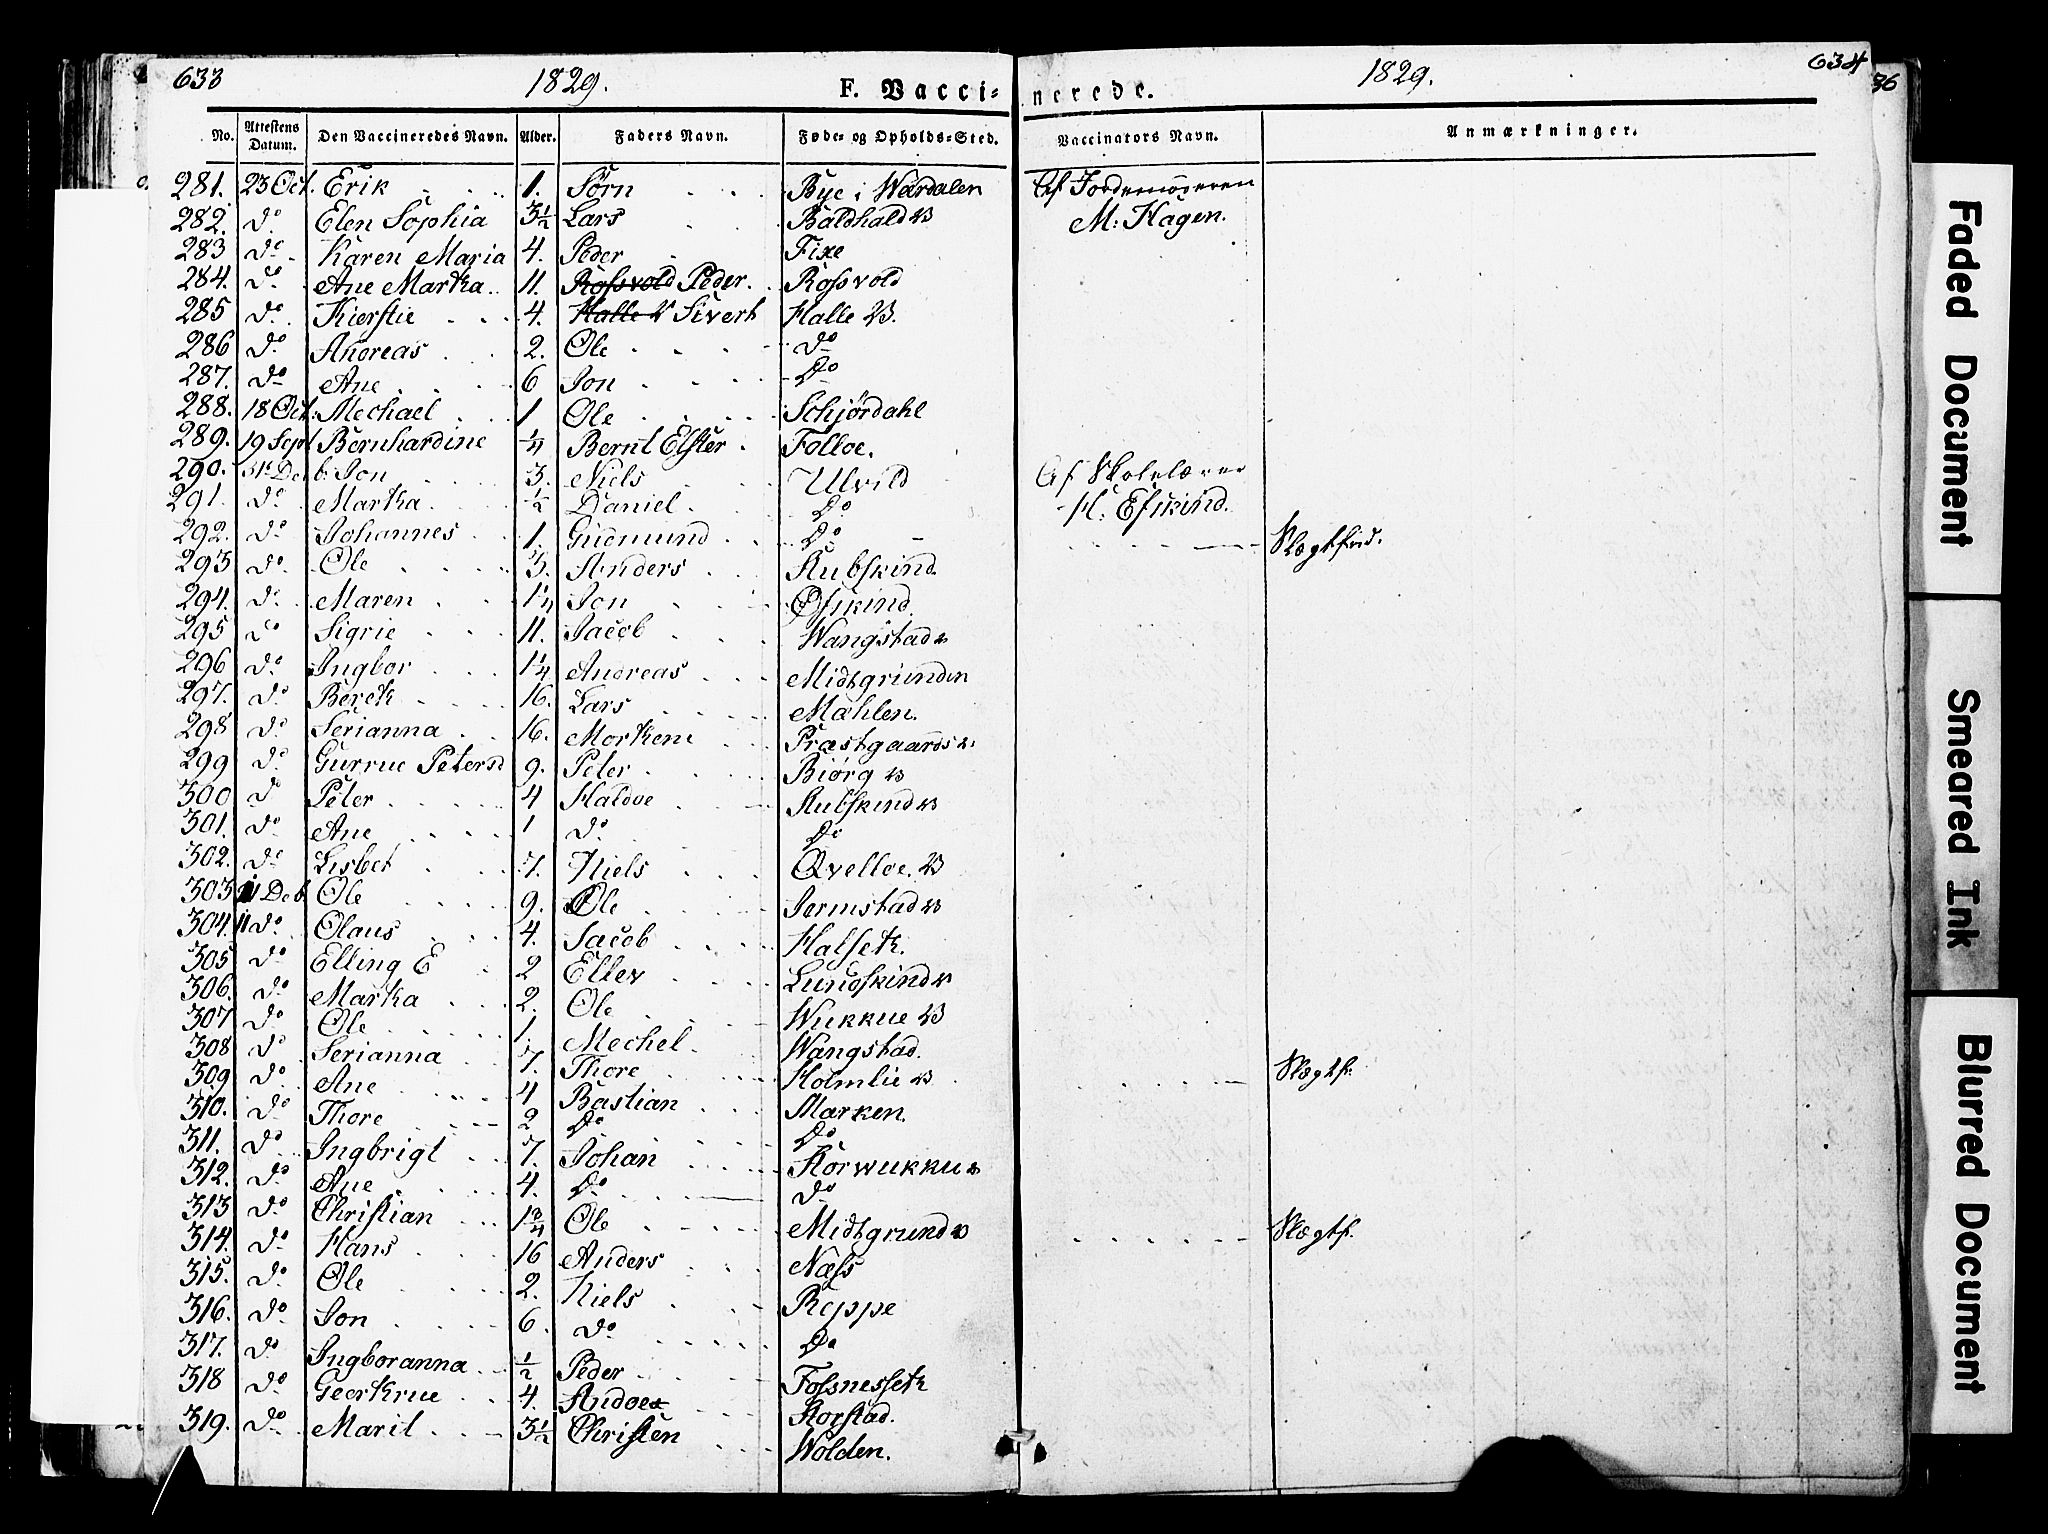 633 1829. F. Vacci- nerede. 1829. 634
36
No. Attestens Datum. Den Vaccineredes Navn. Alder. Faders Navn. Føde- og Opholds-Sted. Vaccinators Navn. Anmærkninger.
281. 23 Oct. Erik 1. Sörn Bye i Wærdalen Af Jordemoderen
282. Do Elen Sophia 3½ Lars Baldhald V M: Hagen.
283 Do Karen Maria 4. Peder Fixe
284. Do Ane Martha 11. Rossvold Peder. Rossvold
285 Do Kierstie 4. Halle V Sivert Halle V.
286 Do Andreas 2. Ole Do
287. Do Ane 6 Jon Do
288. 18 Oct: Mechael 1 Ole Schjørdahl
289. 19 Sept Bernhardine ¼ Bernt Elster Folloe.
290. 31 Decb: Jon 3. Niels Ulvild Af Skolelærer
291. Do Martha ½ Daniel Do H: Efskind.
292. Do Johannes 1. Gudmund Do Slægtfrd.
293 Do Ole 3. Anders Rubskind
294. Do Maren 1¼ Jon Øfskind
295 Do Sigrie 11. Jacob Wangstad V
296 Do Ingbor 1¼ Andreas Midtgrunden
297. Do Bereth 16. Lars Mæhlen.
298 Do Serianna 16. Morthene Præstgaards V
299 Do Gurrue Petersd 9. Peter Biørg V
300 Do Peter 4 Haldoe Rubskind V
301. Do Ane 1 Do Do
302. Do Lisbet 7. Niels Qvelloe. V
303 11 Deb Ole 9. Ole Jermstad V
304. 11 Do Olaus 4. Jacob Halseth.
305 Do Elling E 2 Ellev Lundskind V
306. Do Martha 2. Ole Wukkue V
307 Do Ole 1. Mechel Wangstad.
308 Do Serianna 7. Thore Holmlie V Slægtf.
309 Do Ane 4 Bastian Marken.
310. Do Thore 2 Do Do
311. Do Ingbrigt 7. Johan Korwukku V
312. Do Ane 4. Do Do
313 Do Christian 1¾ Ole Midtgrund V Slægtf.
314. Do Hans 16 Anders Næss
315. Do Ole 2. Niels Reppe
316. Do Jon 6. Do Do
317. Do Ingboranna ½ Peder Fossnesseth
318 Do Georthrue 4. Andoes Korstad.
319. Do Marit 3½ Christen Wolden.
Faded Document
Smeared Ink
Blurred Document